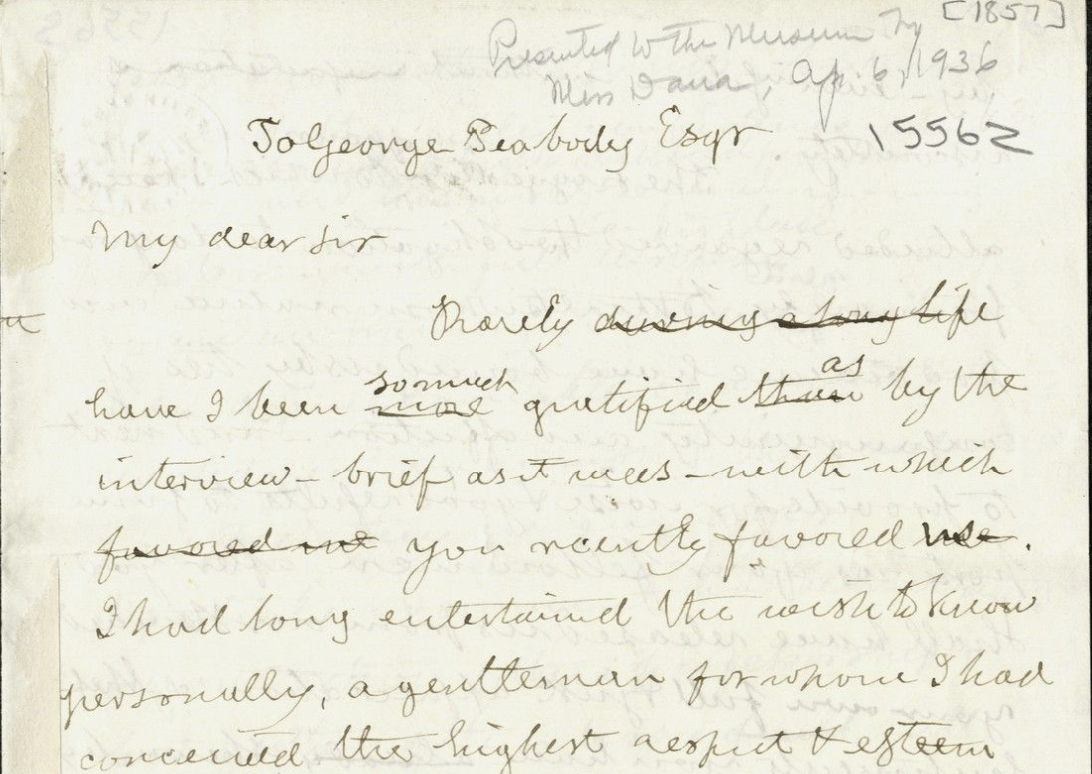 [1857]
Presented to the Museum by
Miss Dana, Ap. 6, 1936
15562
To George Peabody Esqr
My dear Sir
Rarely during a long life
so much as
have I been more gratified than by the
interview – brief as it was – with which
favored me you recently favored me.
I had long entertained the wish to know
personally, a gentleman for whom I had
conceived the highest respect & esteem